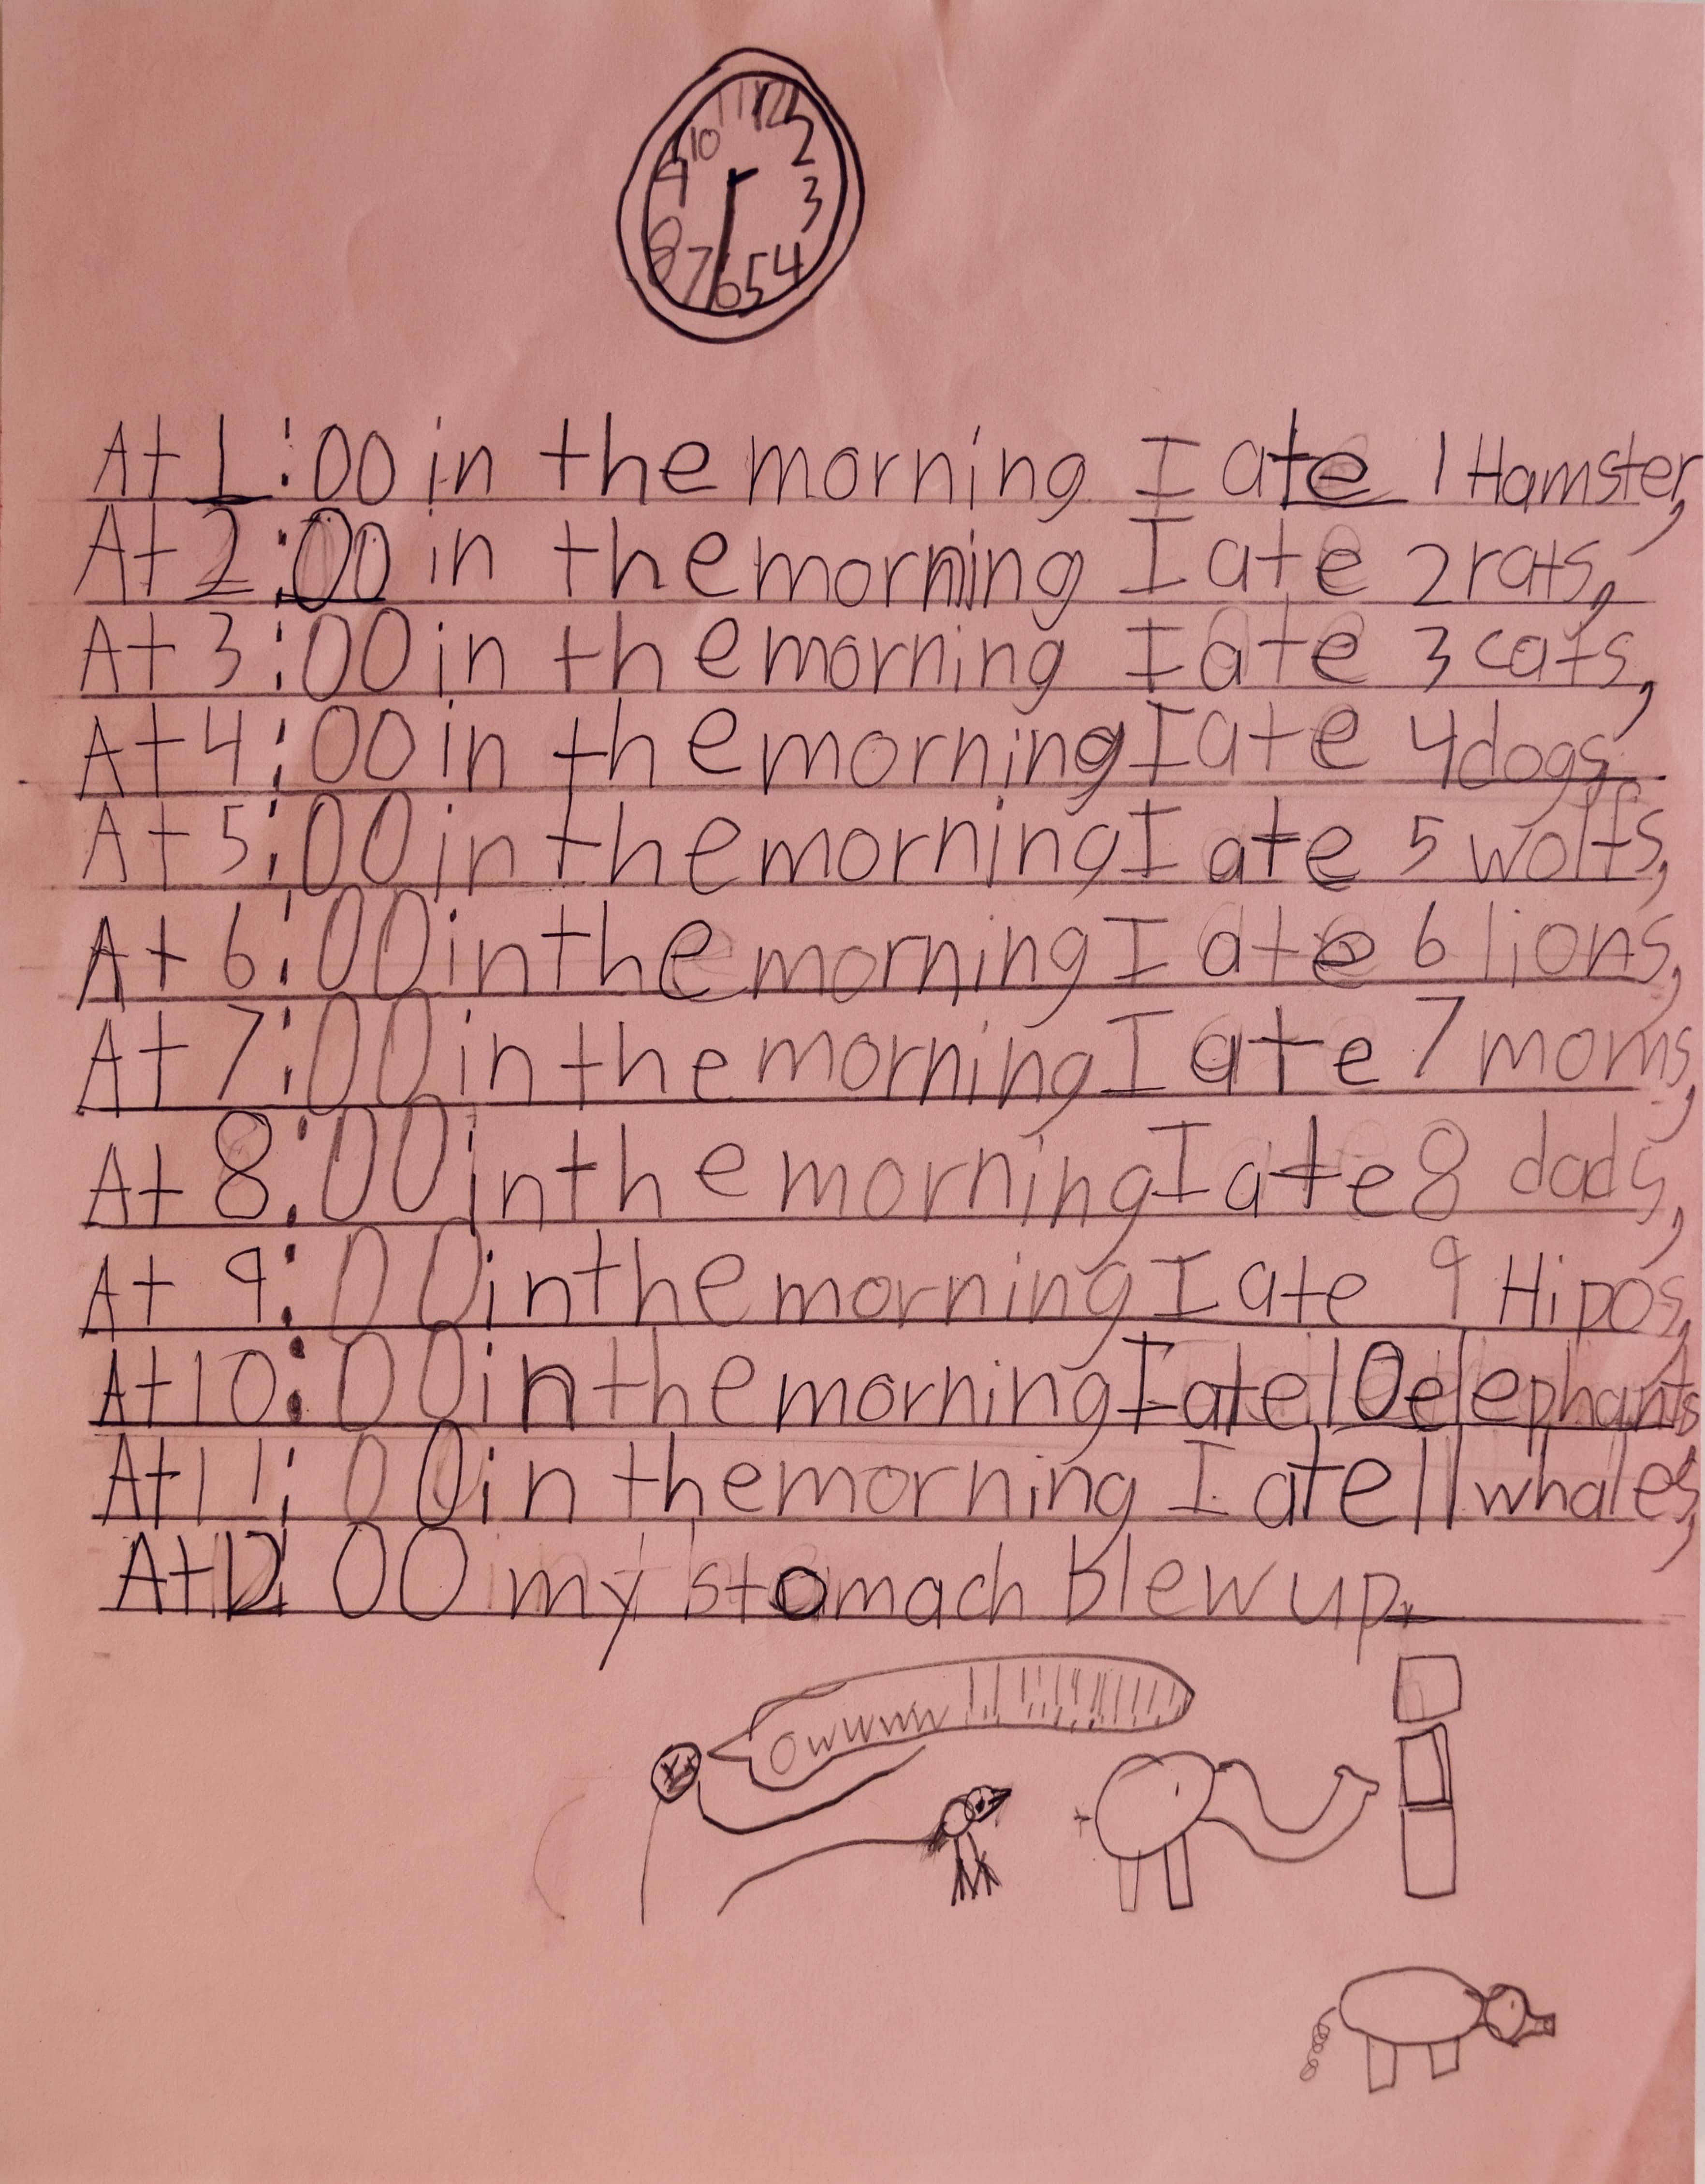 11 12
10 2
9 3
8 4
7 6 5
At 1:00 in the morning I ate 1 Hamster,
At 2:00 in the morning I ate 2 rats,
At 3:00 in the morning I ate 3 cats,
At 4:00 in the morning I ate 4 dogs,
At 5:00 in the morning I ate 5 wolfs,
At 6:00 in the morning I ate 6 lions,
At 7:00 in the morning I ate 7 moms,
At 8:00 in the morning I ate 8 dads,
At 9:00 in the morning I ate 9 Hipos,
At 10:00 in the morning I ate 10 elephants
At 11:00 in the morning I ate 11 whales,
At 12:00 my stomach blew up.
Owwww